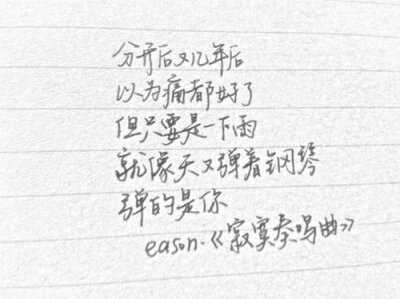 分开后又几年后
以为痛都好了
但只要是一下雨
就像天又弹着钢琴
弹的是你
eason.《寂寞奏鸣曲》